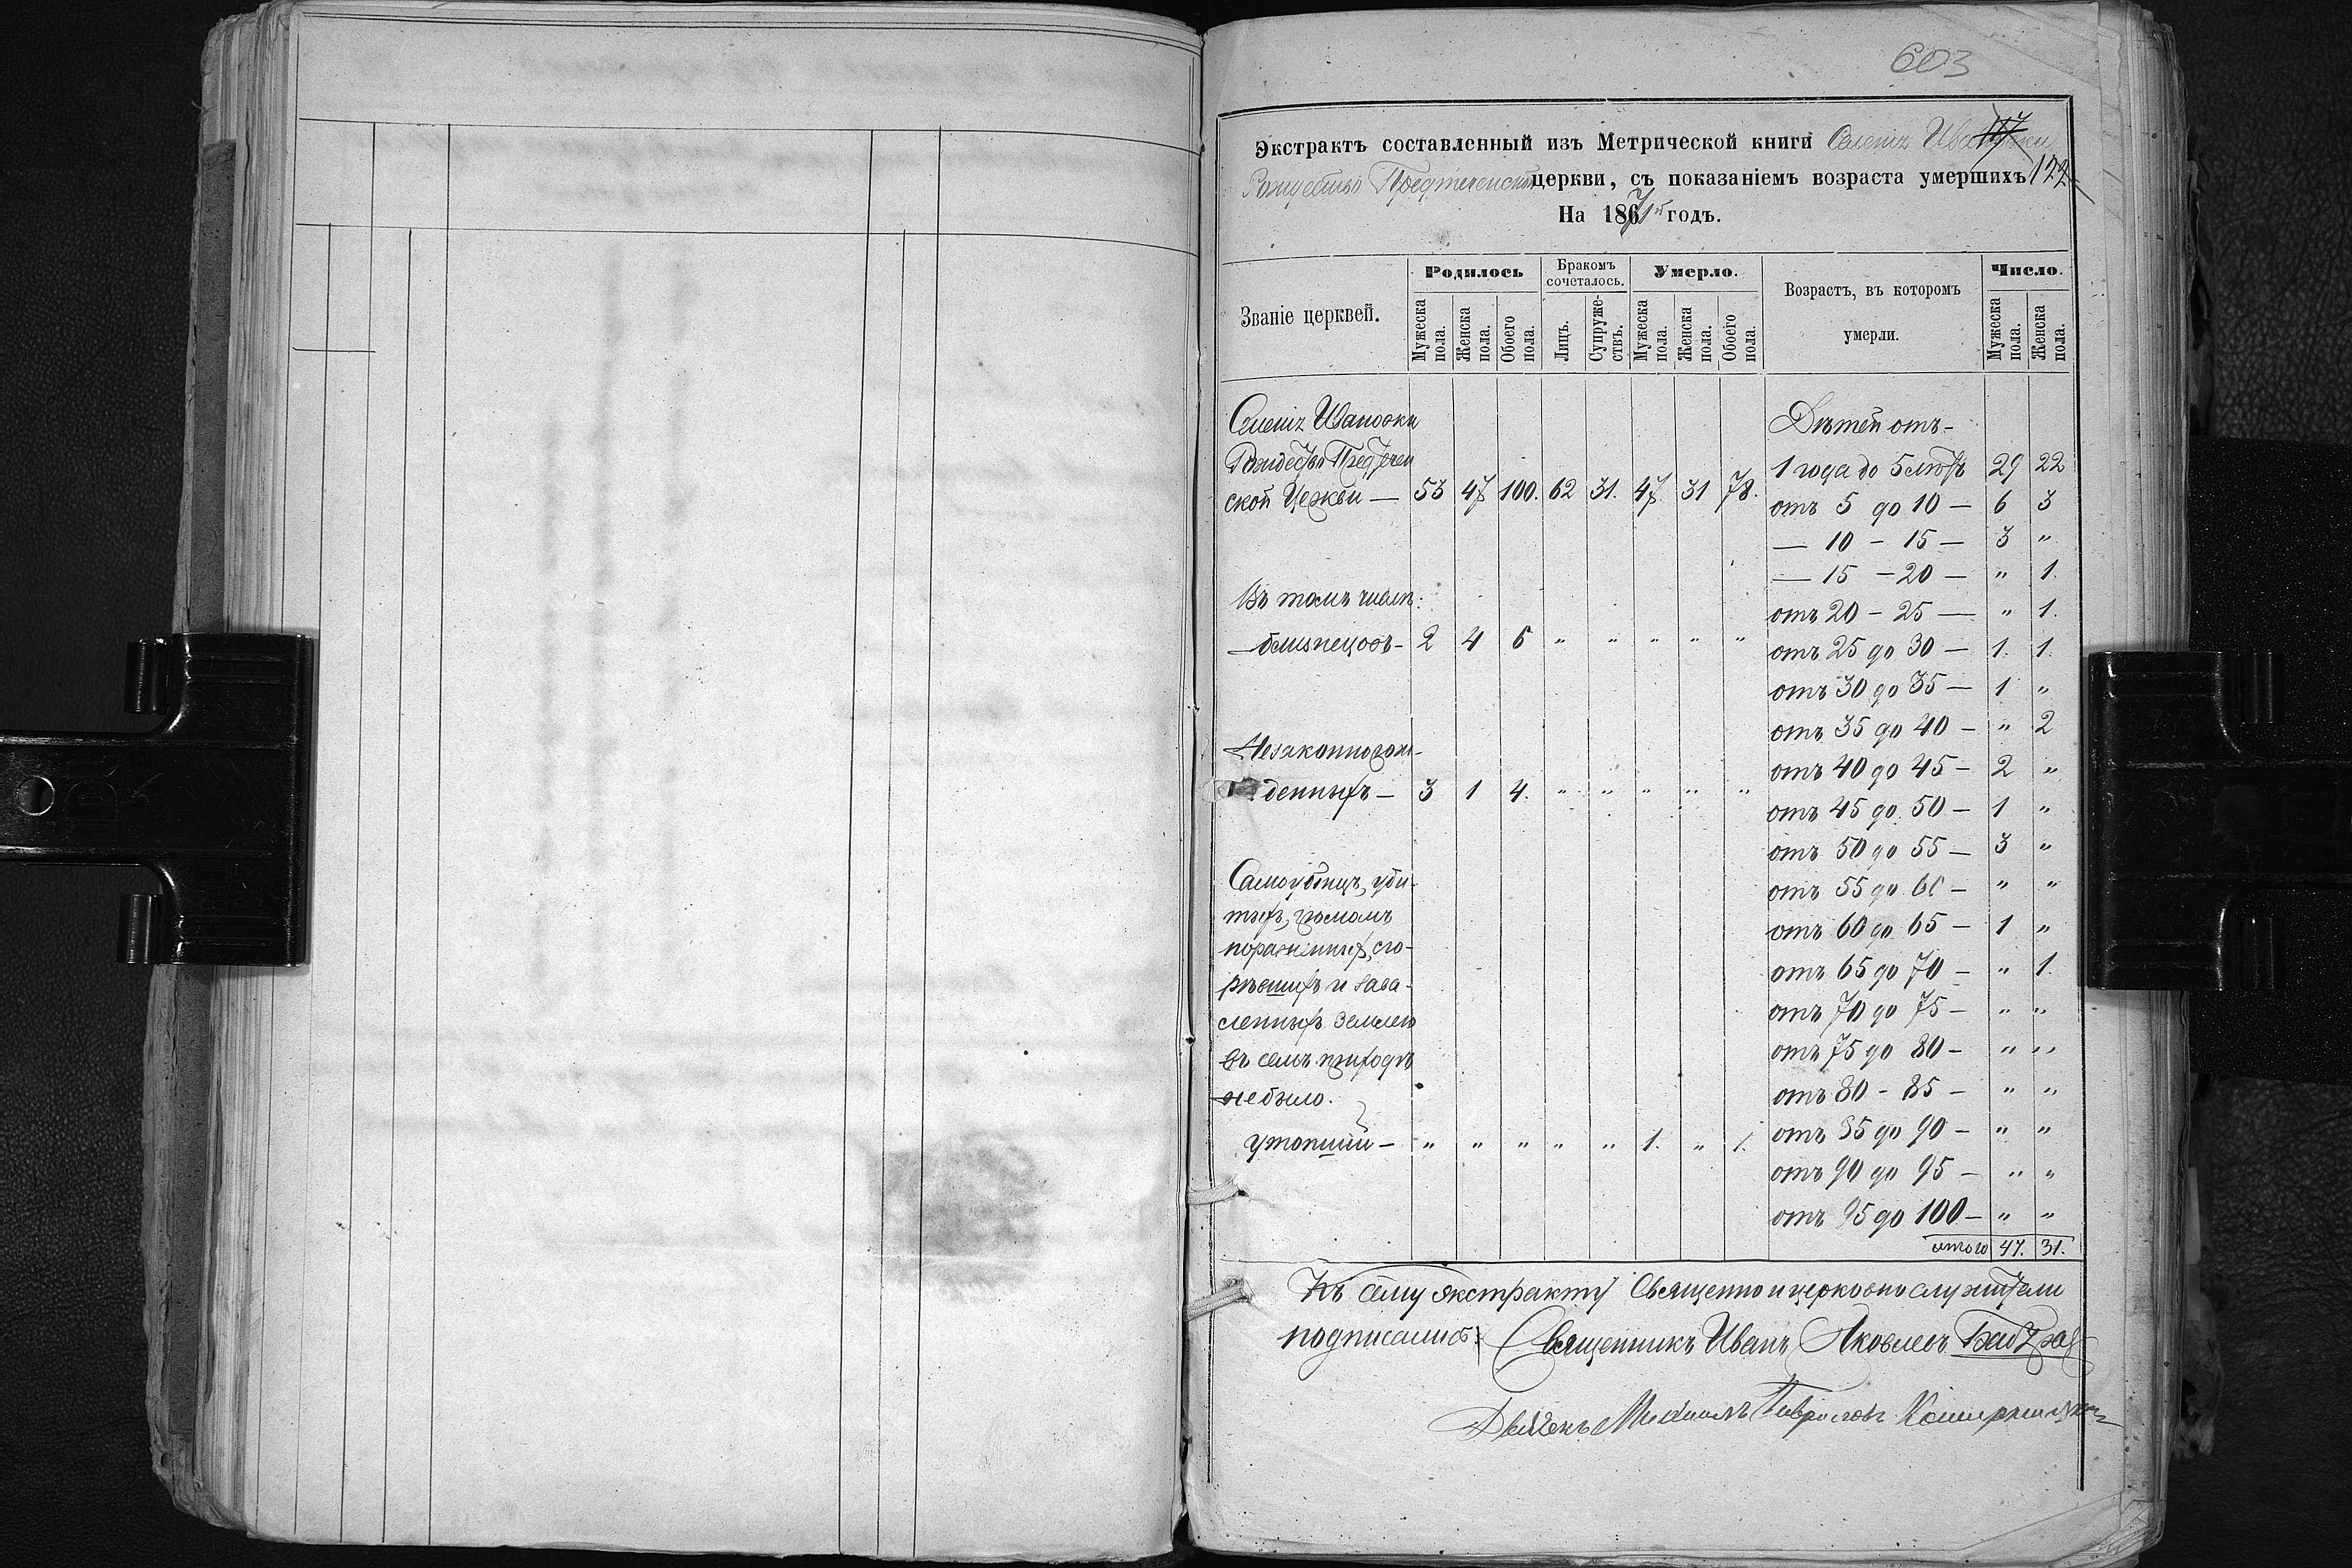 603
Экстрактъ составленный изъ Метрической книги Селенія Ивановки
117
Рождество Предтеченской церкви, съ показаніемъ возраста умершихъ 122
На 1871й годъ.
Званіе церквей. Родилось Бракомъ сочеталось. Умерло. Возрастъ, въ которомъ умерли. Число.
Мужеска пола. Женска пола. Обоего пола. Лицъ. Супружествъ. Мужеска пола. Женска пола. Обоего пола. Мужеска пола. Женска пола.
Селенія Ивановки Дѣтей отъ-
Рождество Предтечен 1 года до 5 лѣтъ 29 22
ской Церкви — 53 47 100. 62 31. 47. 31 78.
отъ 5 до 10 — 6 3
— 10 - 15 — 3 "
— 15 - 20 — " 1.
Въ томъ числѣ: отъ 20 - 25 — " 1.
близнецовъ - 2 4 6 " " " " " отъ 25 до 30 — 1. 1.
отъ 30 до 35 — 1 "
отъ 35 до 40 - " 2
Незаконнорож- отъ 40 до 45 - 2 "
денныхъ — 3 1 4. " " " " " отъ 45 до 50 — 1 "
отъ 50 до 55 — 3 "
Самоубійцъ, уби- отъ 55 до 60 - " "
тыхъ, громомъ отъ 60 до 65 - 1 "
пораженныхъ, сго-
рѣвшихъ и зава- отъ 65 до 70 - " 1.
ленныхъ землею отъ 70 до 75 - " "
въ семъ приходѣ отъ 75 до 80 - " "
не было. отъ 80 - 85 - " "
утопшій - " " " " " 1. " 1. отъ 85 до 90 - " "
отъ 90 до 95 - " "
отъ 95 до 100 - " "
итого 47. 31.
Къ сему экстракту Священно и церковно служители
подписались: Священникъ Иванъ Яковлевъ
Дьячекъ Михаилъ